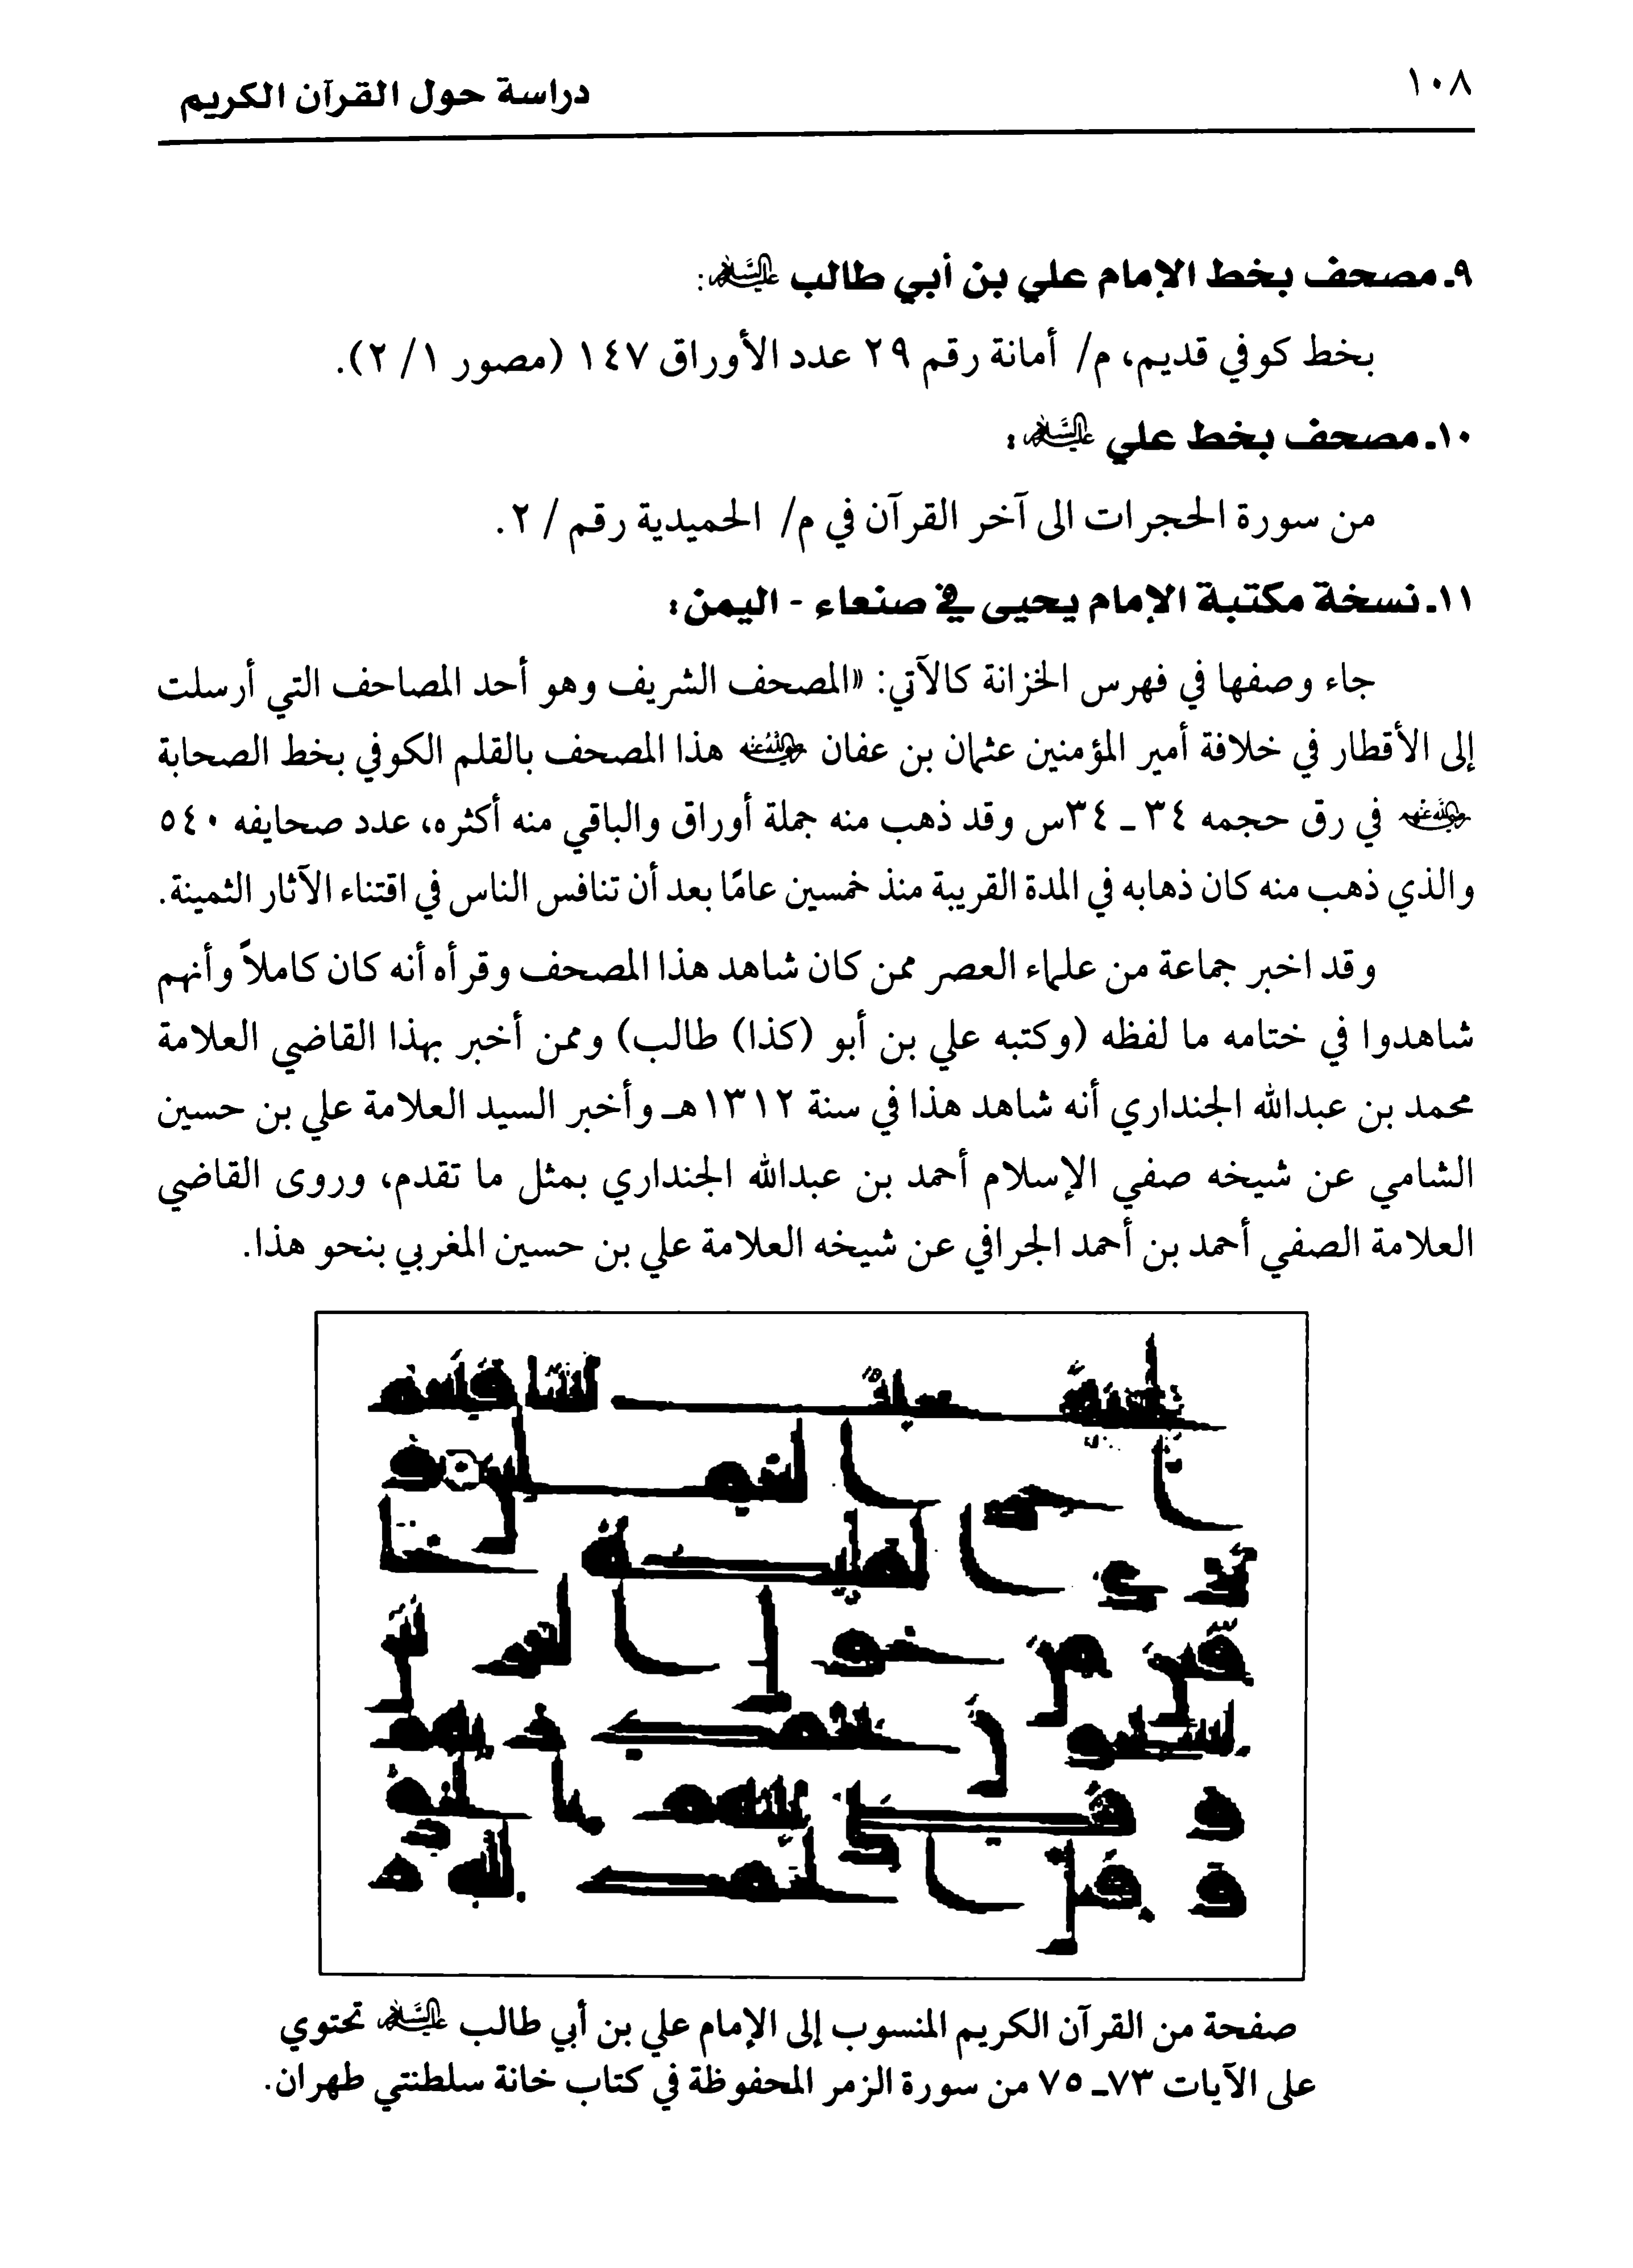 ١٠٨
دراسة حول القرآن الكريم
٩ـ مصحف بخط الإمام علي بن أبي طالب عليه السلام:
بخط كوفي قديم، م/ أمانة رقم ٢٩ عدد الأوراق ١٤٧ (مصور ١/ ٢).
١٠ـ مصحف بخط علي عليه السلام:
من سورة الحجرات الى آخر القرآن في م/ الحميدية رقم / ٢.
١١ـ نسخة مكتبة الإمام يحيى في صنعاء - اليمن:
جاء وصفها في فهرس الخزانة كالآتي: «المصحف الشريف وهو أحد المصاحف التي أرسلت
إلى الأقطار في خلافة أمير المؤمنين عثمان بن عفان رضي الله عنه هذا المصحف بالقلم الكوفي بخط الصحابة
رضي الله عنهم في رق حجمه ٣٤ ـ ٣٤س وقد ذهب منه جملة أوراق والباقي منه أكثره، عدد صحايفه ٥٤٠
والذي ذهب منه كان ذهابه في المدة القريبة منذ خمسين عامًا بعد أن تنافس الناس في اقتناء الآثار الثمينة.
وقد اخبر جماعة من علماء العصر ممن كان شاهد هذا المصحف وقرأه أنه كان كاملاً وأنهم
شاهدوا في ختامه ما لفظه (وكتبه علي بن أبو (كذا) طالب) وممن أخبر بهذا القاضي العلامة
محمد بن عبدالله الجنداري أنه شاهد هذا في سنة ١٣١٢هـ وأخبر السيد العلامة علي بن حسين
الشامي عن شيخه صفي الإسلام أحمد بن عبدالله الجنداري بمثل ما تقدم، وروى القاضي
العلامة الصفي أحمد بن أحمد الجرافي عن شيخه العلامة علي بن حسين المغربي بنحو هذا.
صفحة من القرآن الكريم المنسوب إلى الإمام علي بن أبي طالب عليه السلام تحتوي
على الآيات ٧٣ـ ٧٥ من سورة الزمر المحفوظة في كتاب خانة سلطنتي طهران.